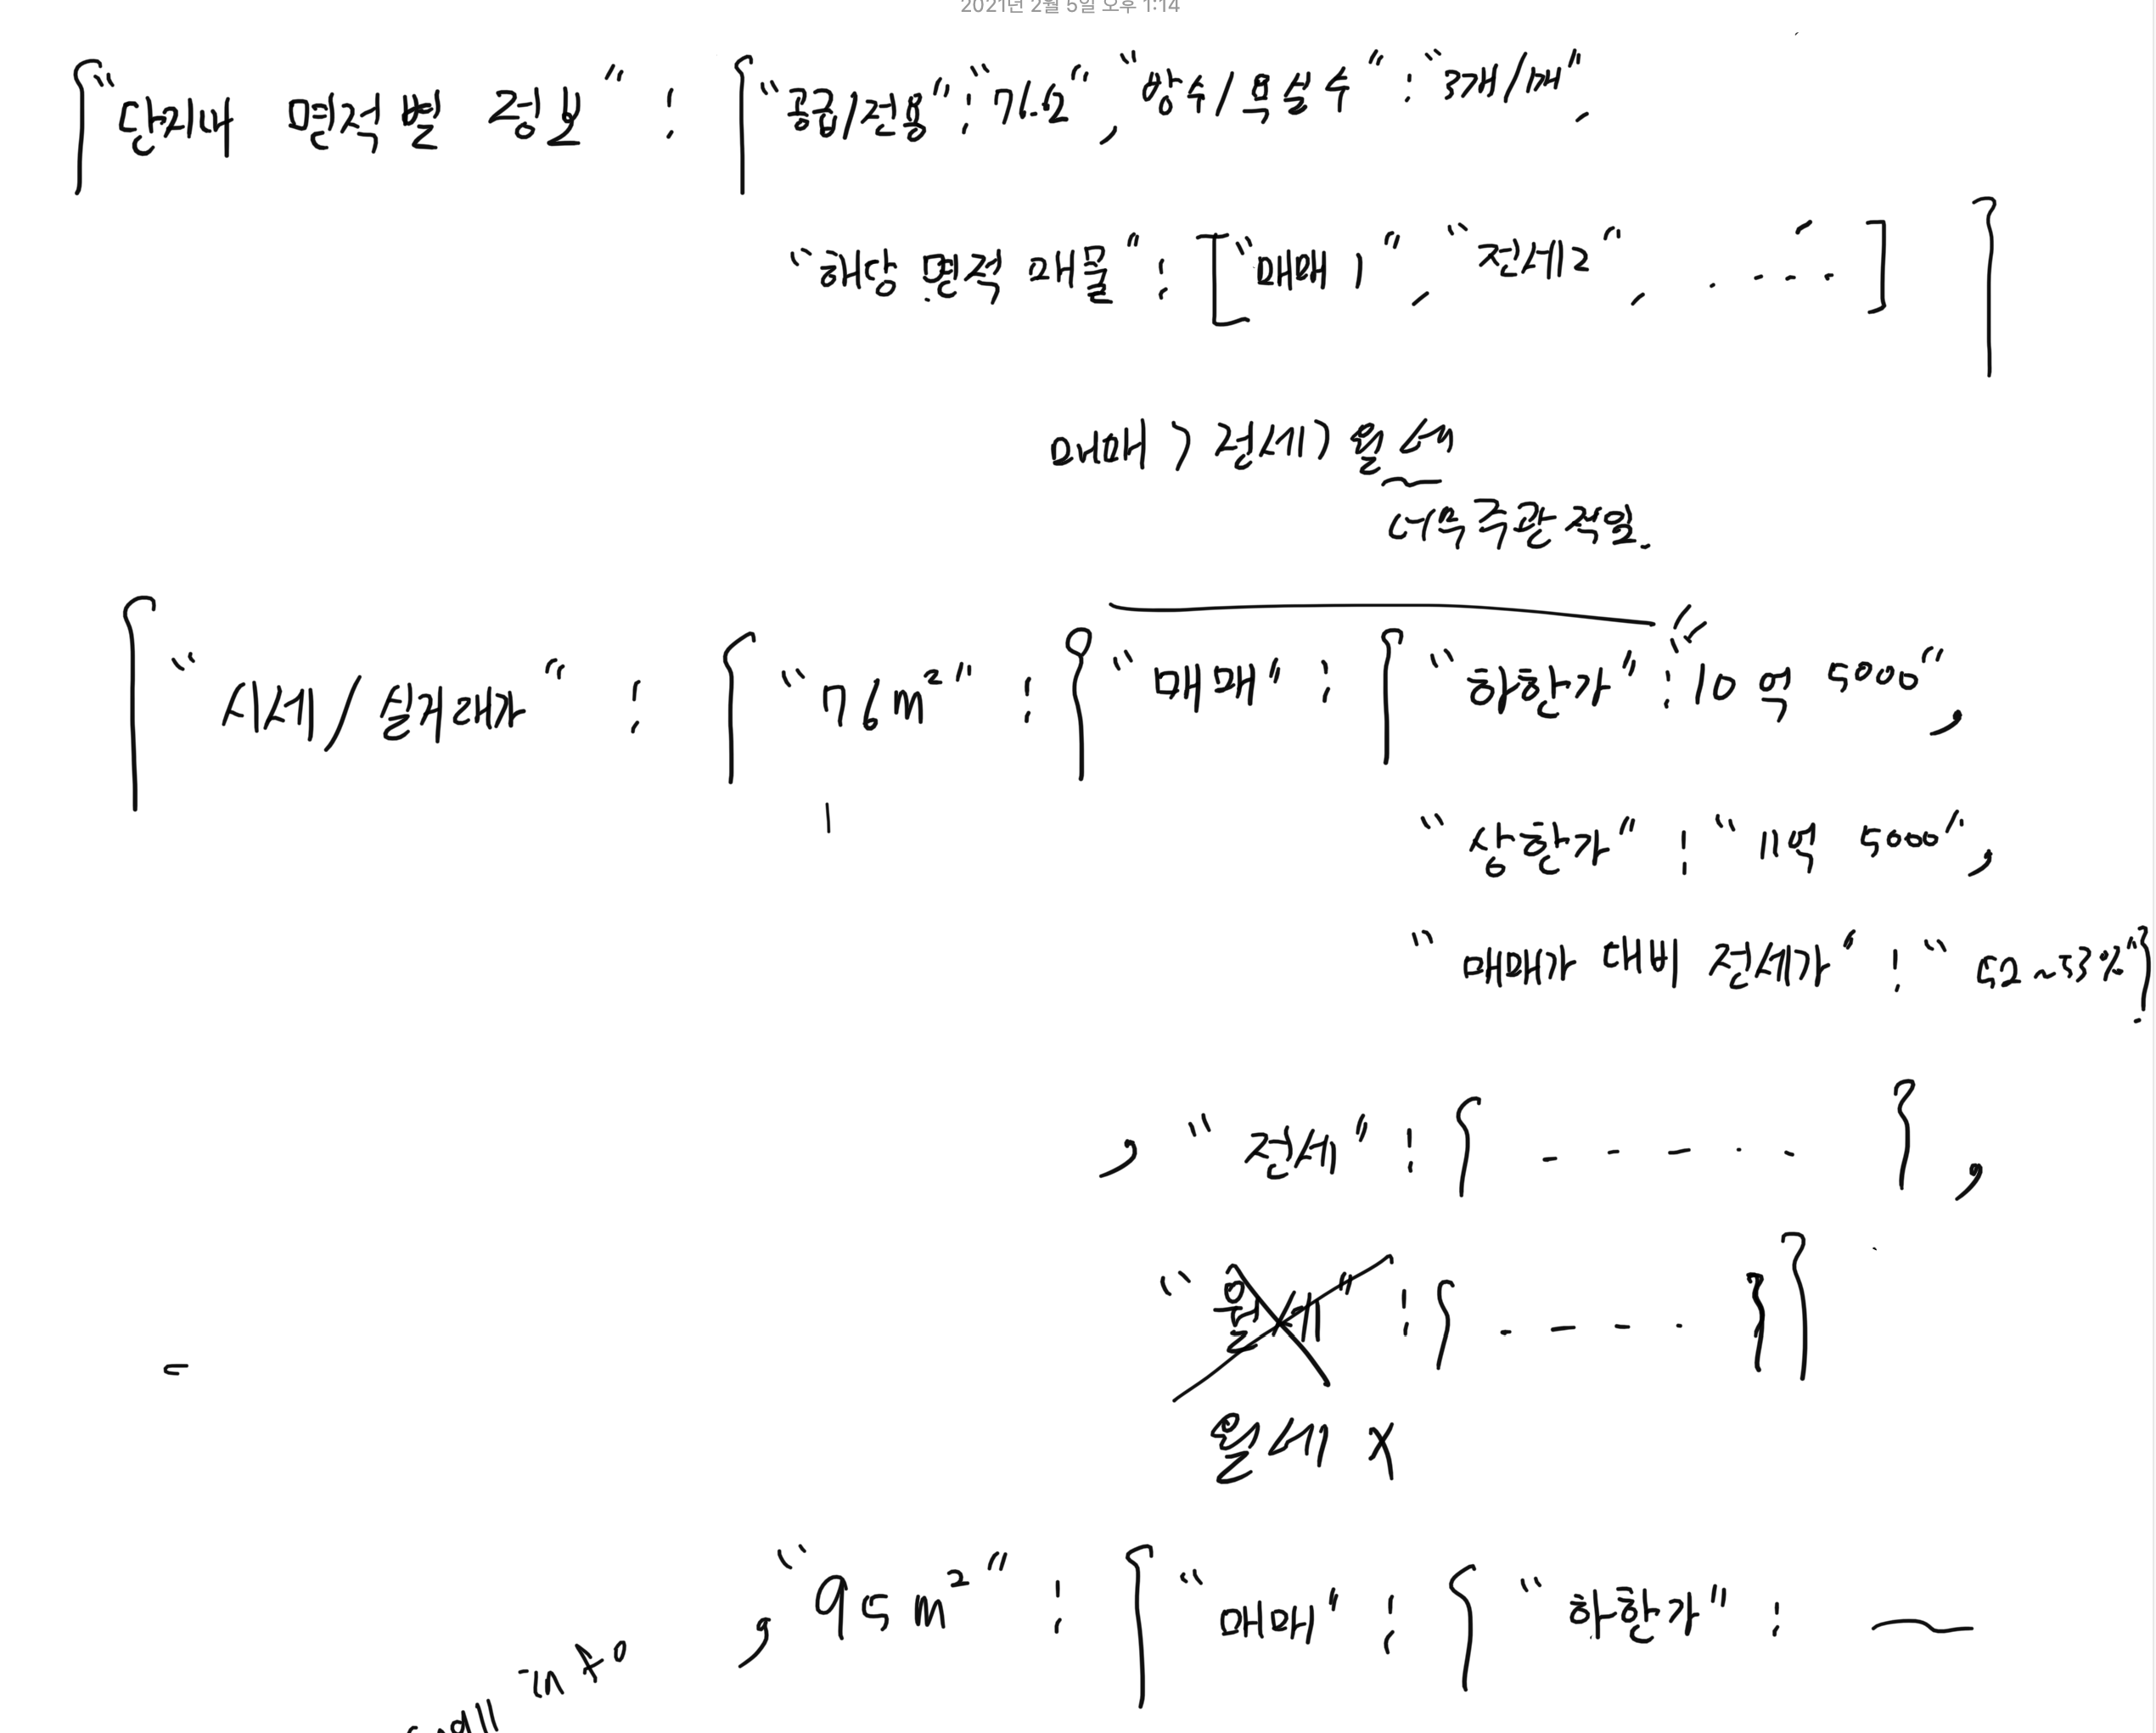 2021년 2월 5일 오후 1:14
{"단지내 면적별 정보" : {"공급/전용" : "76.62", "방수/욕실수" : "3개/1개",
"해당 면적 매물" : ["매매 1", "전세2", . - - - ] }
매매 > 전세 > 월세
너무 주관적임.
{"시세/실거래가" : {"76m²" : {"매매" : {"하한가" : "10억 5000",
"상한가" : "11억 5000",
"매매가 대비 전세가" : "52~53%"}
, "전세" : { - - - - - },
"월세" : { - - - - }}
월세 X
, "95m²" : {"매매" : {"하한가" : ~
in to